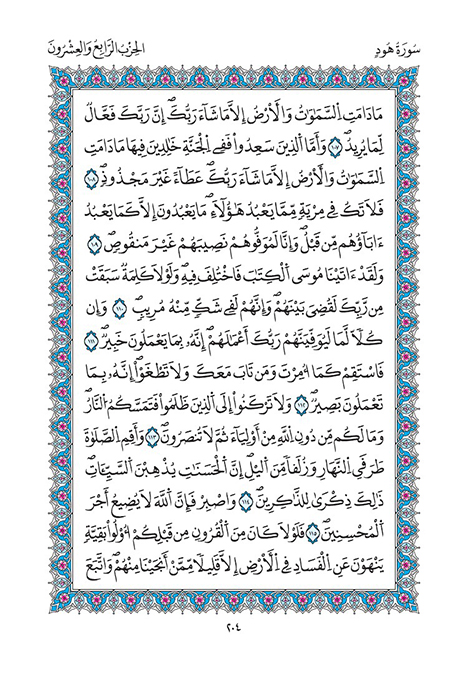 سُورَةُ هُودٍ
الحِزْبُ الرَّابِعُ وَالعِشْرُونَ
مَا دَامَتِ اِ۬لسَّمَٰوَٰتُ وَالْأَرْضُ إِلَّا مَا شَآءَ رَبُّكَۖ إِنَّ رَبَّكَ فَعَّالٞ
لِّمَا يُرِيدُۖ ١٠٧ وَأَمَّا اَ۬لذِينَ سَعِدُواْ فَفِے اِ۬لْجَنَّةِ خَٰلِدِينَ فِيهَا مَا دَامَتِ
اِ۬لسَّمَٰوَٰتُ وَالْأَرْضُ إِلَّا مَا شَآءَ رَبُّكَۖ عَطَآءً غَيْرَ مَجْذُوذٖۖ ١٠٨
فَلَا تَكُ فِے مِرْيَةٖ مِّمَّا يَعْبُدُ هَٰٓؤُلَآءِۖ مَا يَعْبُدُونَ إِلَّا كَمَا يَعْبُدُ
ءَابَآؤُهُم مِّن قَبْلُۖ وَإِنَّا لَمُوَفُّوهُمْ نَصِيبَهُمْ غَيْرَ مَنقُوصٖۖ ١٠٩
وَلَقَدَ اٰتَيْنَا مُوسَى اَ۬لْكِتَٰبَ فَاخْتُلِفَ فِيهِۖ وَلَوْلَا كَلِمَةٞ سَبَقَتْ
مِن رَّبِّكَ لَقُضِيَ بَيْنَهُمْۖ وَإِنَّهُمْ لَفِے شَكّٖ مِّنْهُ مُرِيبٖۖ ١١٠ وَإِن
كُلّٗا لَّمَا لَيُوَفِّيَنَّهُمْ رَبُّكَ أَعْمَٰلَهُمْۖ إِنَّهُۥ بِمَا يَعْمَلُونَ خَبِيرٞۖ ١١١
فَاسْتَقِمْ كَمَا أُمِرْتَ وَمَن تَابَ مَعَكَ وَلَا تَطْغَوِاْۖ اِنَّهُۥ بِمَا
تَعْمَلُونَ بَصِيرٞۖ ١١٢ وَلَا تَرْكَنُواْ إِلَى اَ۬لذِينَ ظَلَمُواْ فَتَمَسَّكُمُ اُ۬لنَّارُۖ
وَمَا لَكُم مِّن دُونِ اِ۬للَّهِ مِنْ أَوْلِيَآءَ ثُمَّ لَا تُنصَرُونَۖ ١١٣ وَأَقِمِ اِ۬لصَّلَوٰةَ
طَرَفَيِ اِ۬لنَّهَارِ وَزُلَفاٗ مِّنَ اَ۬ليْلِۖ إِنَّ اَ۬لْحَسَنَٰتِ يُذْهِبْنَ اَ۬لسَّيِّـَٔاتِۖ
ذَٰلِكَ ذِكْرَىٰ لِلذَّٰكِرِينَۖ ١١٤ وَاصْبِرْ فَإِنَّ اَ۬للَّهَ لَا يُضِيعُ أَجْرَ
اَ۬لْمُحْسِنِينَۖ ١١٥ فَلَوْلَا كَانَ مِنَ اَ۬لْقُرُونِ مِن قَبْلِكُمْ أُوْلُواْ بَقِيَّةٖ
يَنْهَوْنَ عَنِ اِ۬لْفَسَادِ فِے اِ۬لْأَرْضِ إِلَّا قَلِيلٗا مِّمَّنْ أَنجَيْنَا مِنْهُمْۖ وَاتَّبَعَ
٢٠٤